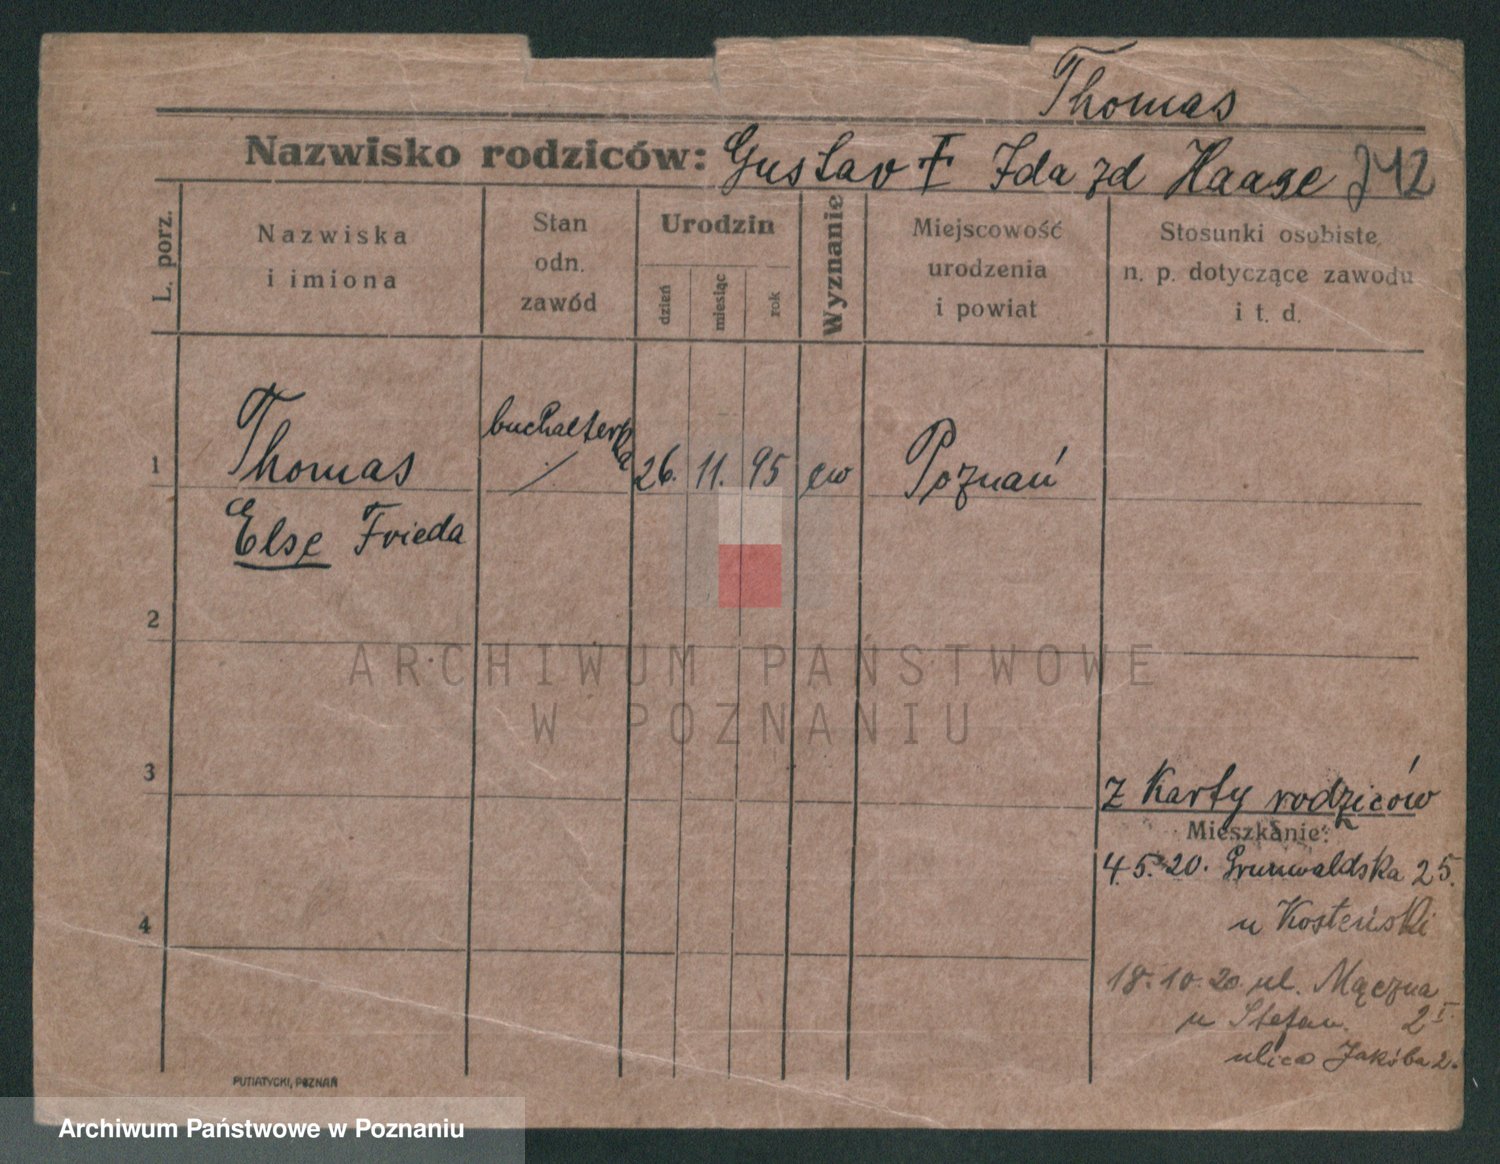 Thomas
Nazwisko rodziców: Gustav Ŧ Ida zd Haase 242
L. porz.
Nazwiska
i imiona
Stan
odn.
zawód
Urodzin
dzień
miesiąc
rok
Wyznanie
Miejscowość
urodzenia
i powiat
Stosunki osobiste,
n. p. dotyczące zawodu
i t. d.
1 Thomas buchalterka 26. 11. 95 ew Poznań
Else Frieda
2
ARCHIWUM PAŃSTWOWE
W POZNANIU
3
z Karty rodziców
Mieszkanie:
4.5.20. Grunwaldska 25.
u Kosteński
4
18.10.20. ul. Mączna
u Stefan. 2 I.
ulica Jakóba 2.
PUTIATYCKI, POZNAŃ
Archiwum Państwowe w Poznaniu